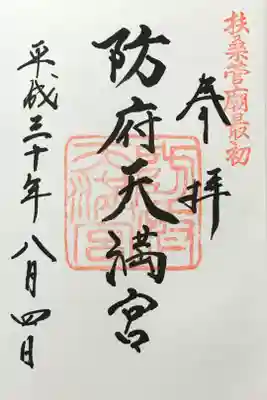 扶桑菅廟最初
奉拝
防府天満宮
平成三十年八月四日